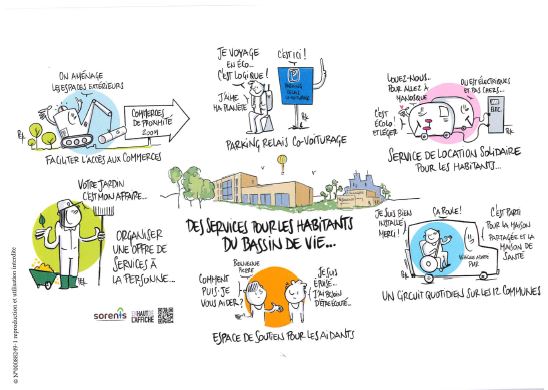 ON AMÉNAGE
LES ESPACES EXTÉRIEURS
COMMERCES
DE PROXIMITÉ
200M
FACILITER L'ACCÈS AUX COMMERCES
JE VOYAGE
EN ÉCO...
C'EST LOGIQUE !
J'AIME
MA PLANÈTE
C'EST ICI !
P
PARKING
RELAIS
CO-VOITURAGE
PARKING RELAIS CO-VOITURAGE
LOUEZ-NOUS...
POUR ALLER À
MANOSQUE
C'EST
ÉCOLO
ET LÉGER
ON EST ÉLECTRIQUES
ET PAS CHERS...
SERVICE DE LOCATION SOLIDAIRE
POUR LES HABITANTS...
VOTRE JARDIN
C'EST MON AFFAIRE...
ORGANISER
UNE OFFRE DE
SERVICES À
LA PERSONNE...
DES SERVICES POUR LES HABITANTS
DU BASSIN DE VIE...
BIENVENUE
COMMENT
PUIS-JE
VOUS AIDER ?
JE SUIS
ÉPUISÉ...
J'AI BESOIN
D'ÊTRE ÉCOUTÉ...
ESPACE DE SOUTIEN POUR LES AIDANTS
JE SUIS BIEN
INSTALLÉ
MERCI !
ÇA ROULE !
C'EST PARTI
POUR LA MAISON
PARTAGÉE ET LA
MAISON DE
SANTÉ
VÉHICULE ADAPTÉ
PMR
UN CIRCUIT QUOTIDIEN SUR LES 12 COMMUNES
sorenis
HAUT DE
L'AFFICHE
reproduction et utilisation interdite